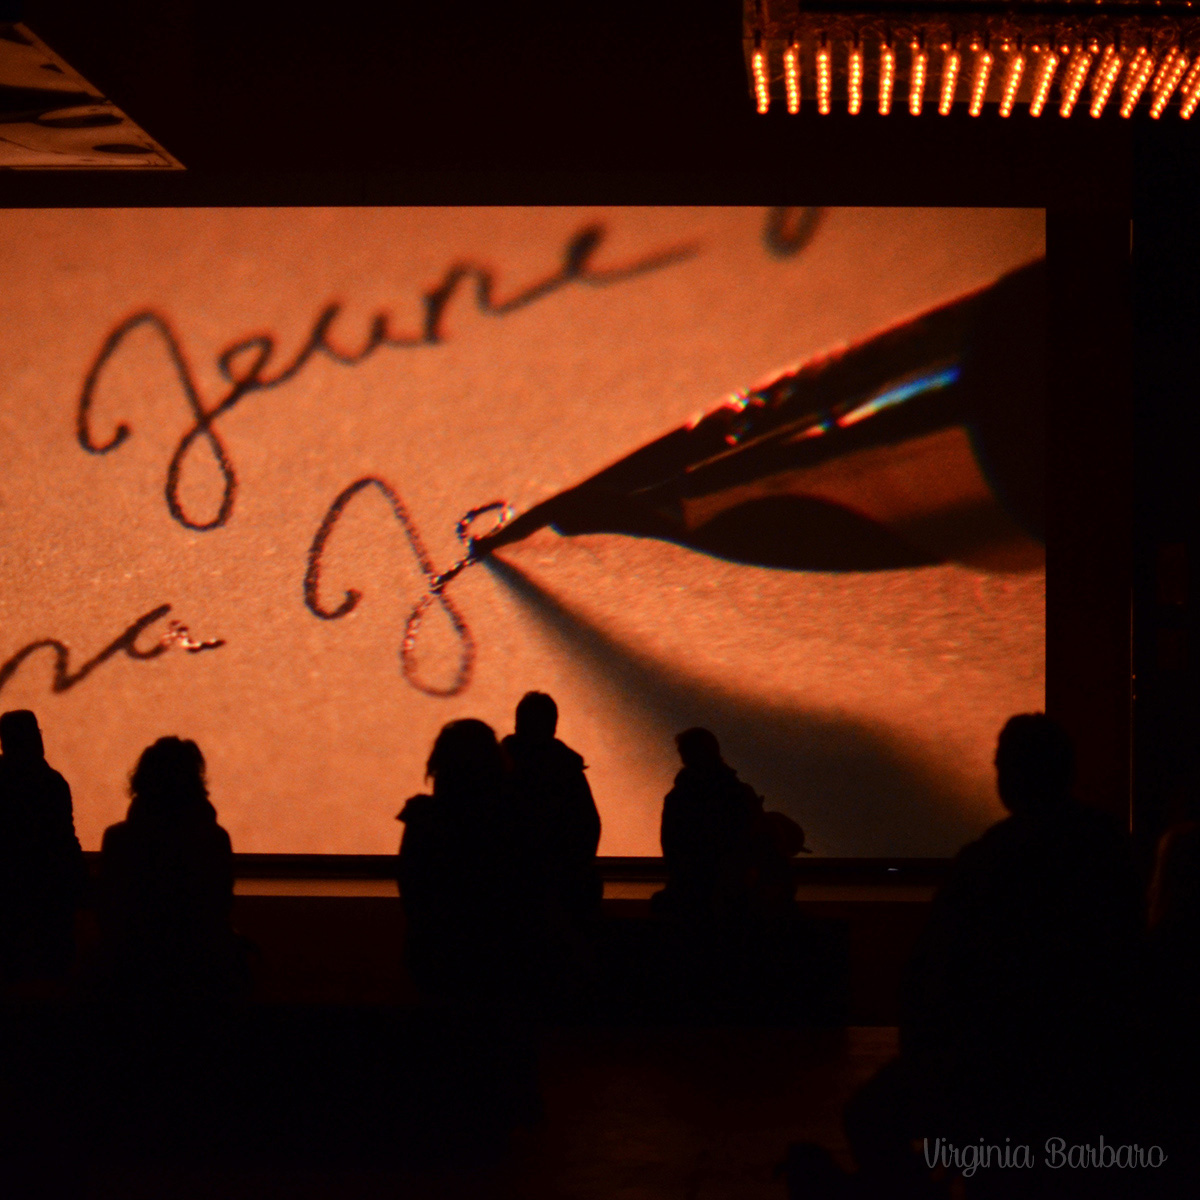 Jeanne
na Je
Virginia Barbaro